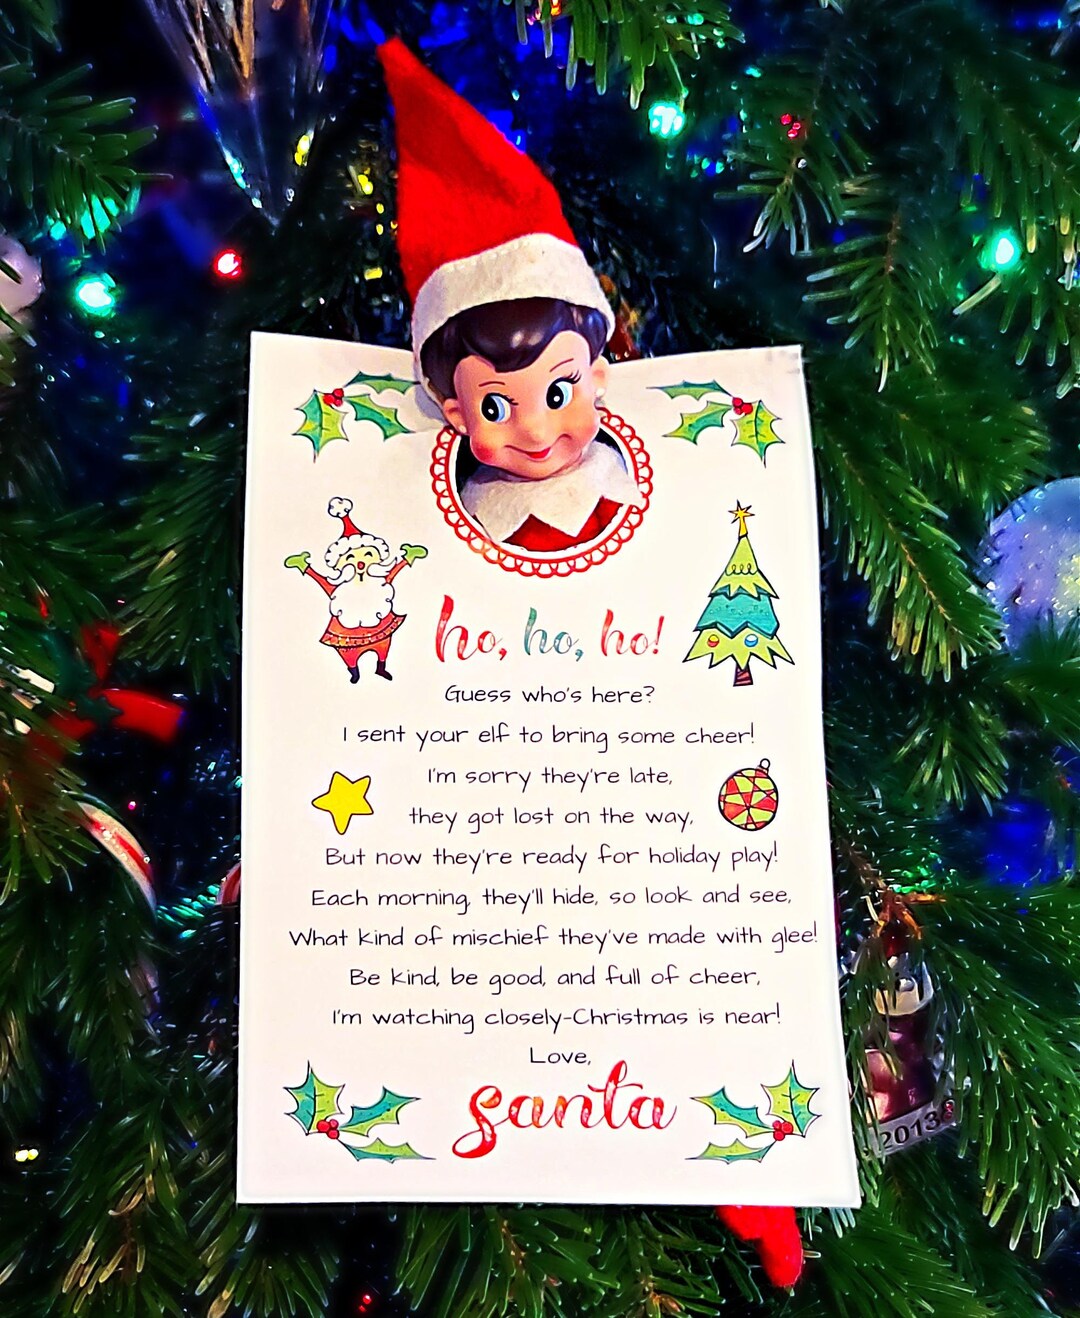 ho, ho, ho!
Guess who's here?
I sent your elf to bring some cheer!
I'm sorry they're late,
they got lost on the way,
But now they're ready for holiday play!
Each morning, they'll hide, so look and see,
What kind of mischief they've made with glee!
Be kind, be good, and full of cheer,
I'm watching closely-Christmas is near!
Love,
santa
2013